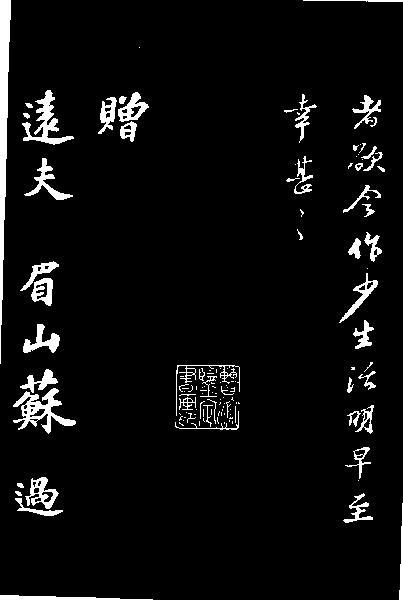 者欲令作少生活明早至
幸甚〻
贈
遠夫 眉山蘇過